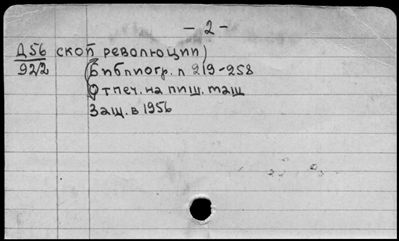 - 2 -
Д56 ской революции)
92/2 (Библиогр. л 219-258
Отпеч. на пиш. маш
Защ. в 1956